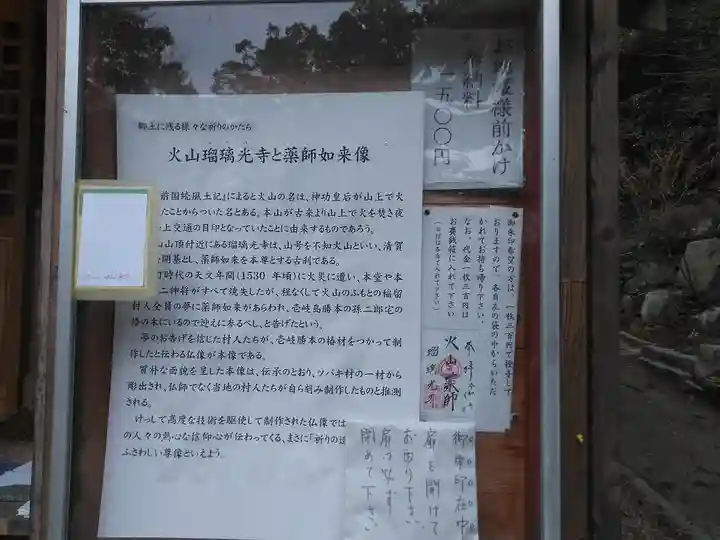 郷土に残る様々な祈りのかたち
火山瑠璃光寺と薬師如来像
前国続風土記』によると火山の名は、神功皇后が山上で火
たことからついた名とある。本山が古来より山上で火を焚き夜
上交通の目印となっていたことに由来するものであろう。
山山頂付近にある瑠璃光寺は、山号を不知火山といい、清賀
開基とし、薬師如来を本尊とする古刹である。
時代の天文年間(1530 年頃)に火災に遭い、本堂や本
二神将がすべて焼失したが、程なくして火山のふもとの稲留
村人全員の夢に薬師如来があらわれ、壱岐島勝本の孫二郎宅の
椿の木にいるので迎えに参るべし、と告げたという。
夢のお告げを信じた村人たちが、壱岐勝本の椿材をつかって制
作したと伝わる仏像が本像である。
質朴な面貌を呈した本像は、伝承のとおり、ツバキ材の一材から
彫出され、仏師でなく当地の村人たちが自ら刻み制作したものと推測
される。
けっして高度な技術を駆使して制作された仏像では
の人々の熱心な信仰心が伝わってくる、まさに「祈りの
ふさわしい尊像といえよう。
様前かけ
料
一五〇〇円
御朱印希望の方は、一枚三百円で授与して
おりますので、各自左の袋の中からいただ
かれてお持ち帰り下さい。
なお、代金一枚三百円は
お賽銭箱に入れて下さい
火山薬師
瑠璃光寺
御朱印在中
扉を開けて
お取り下さい
扉は必ず
閉めて下さい